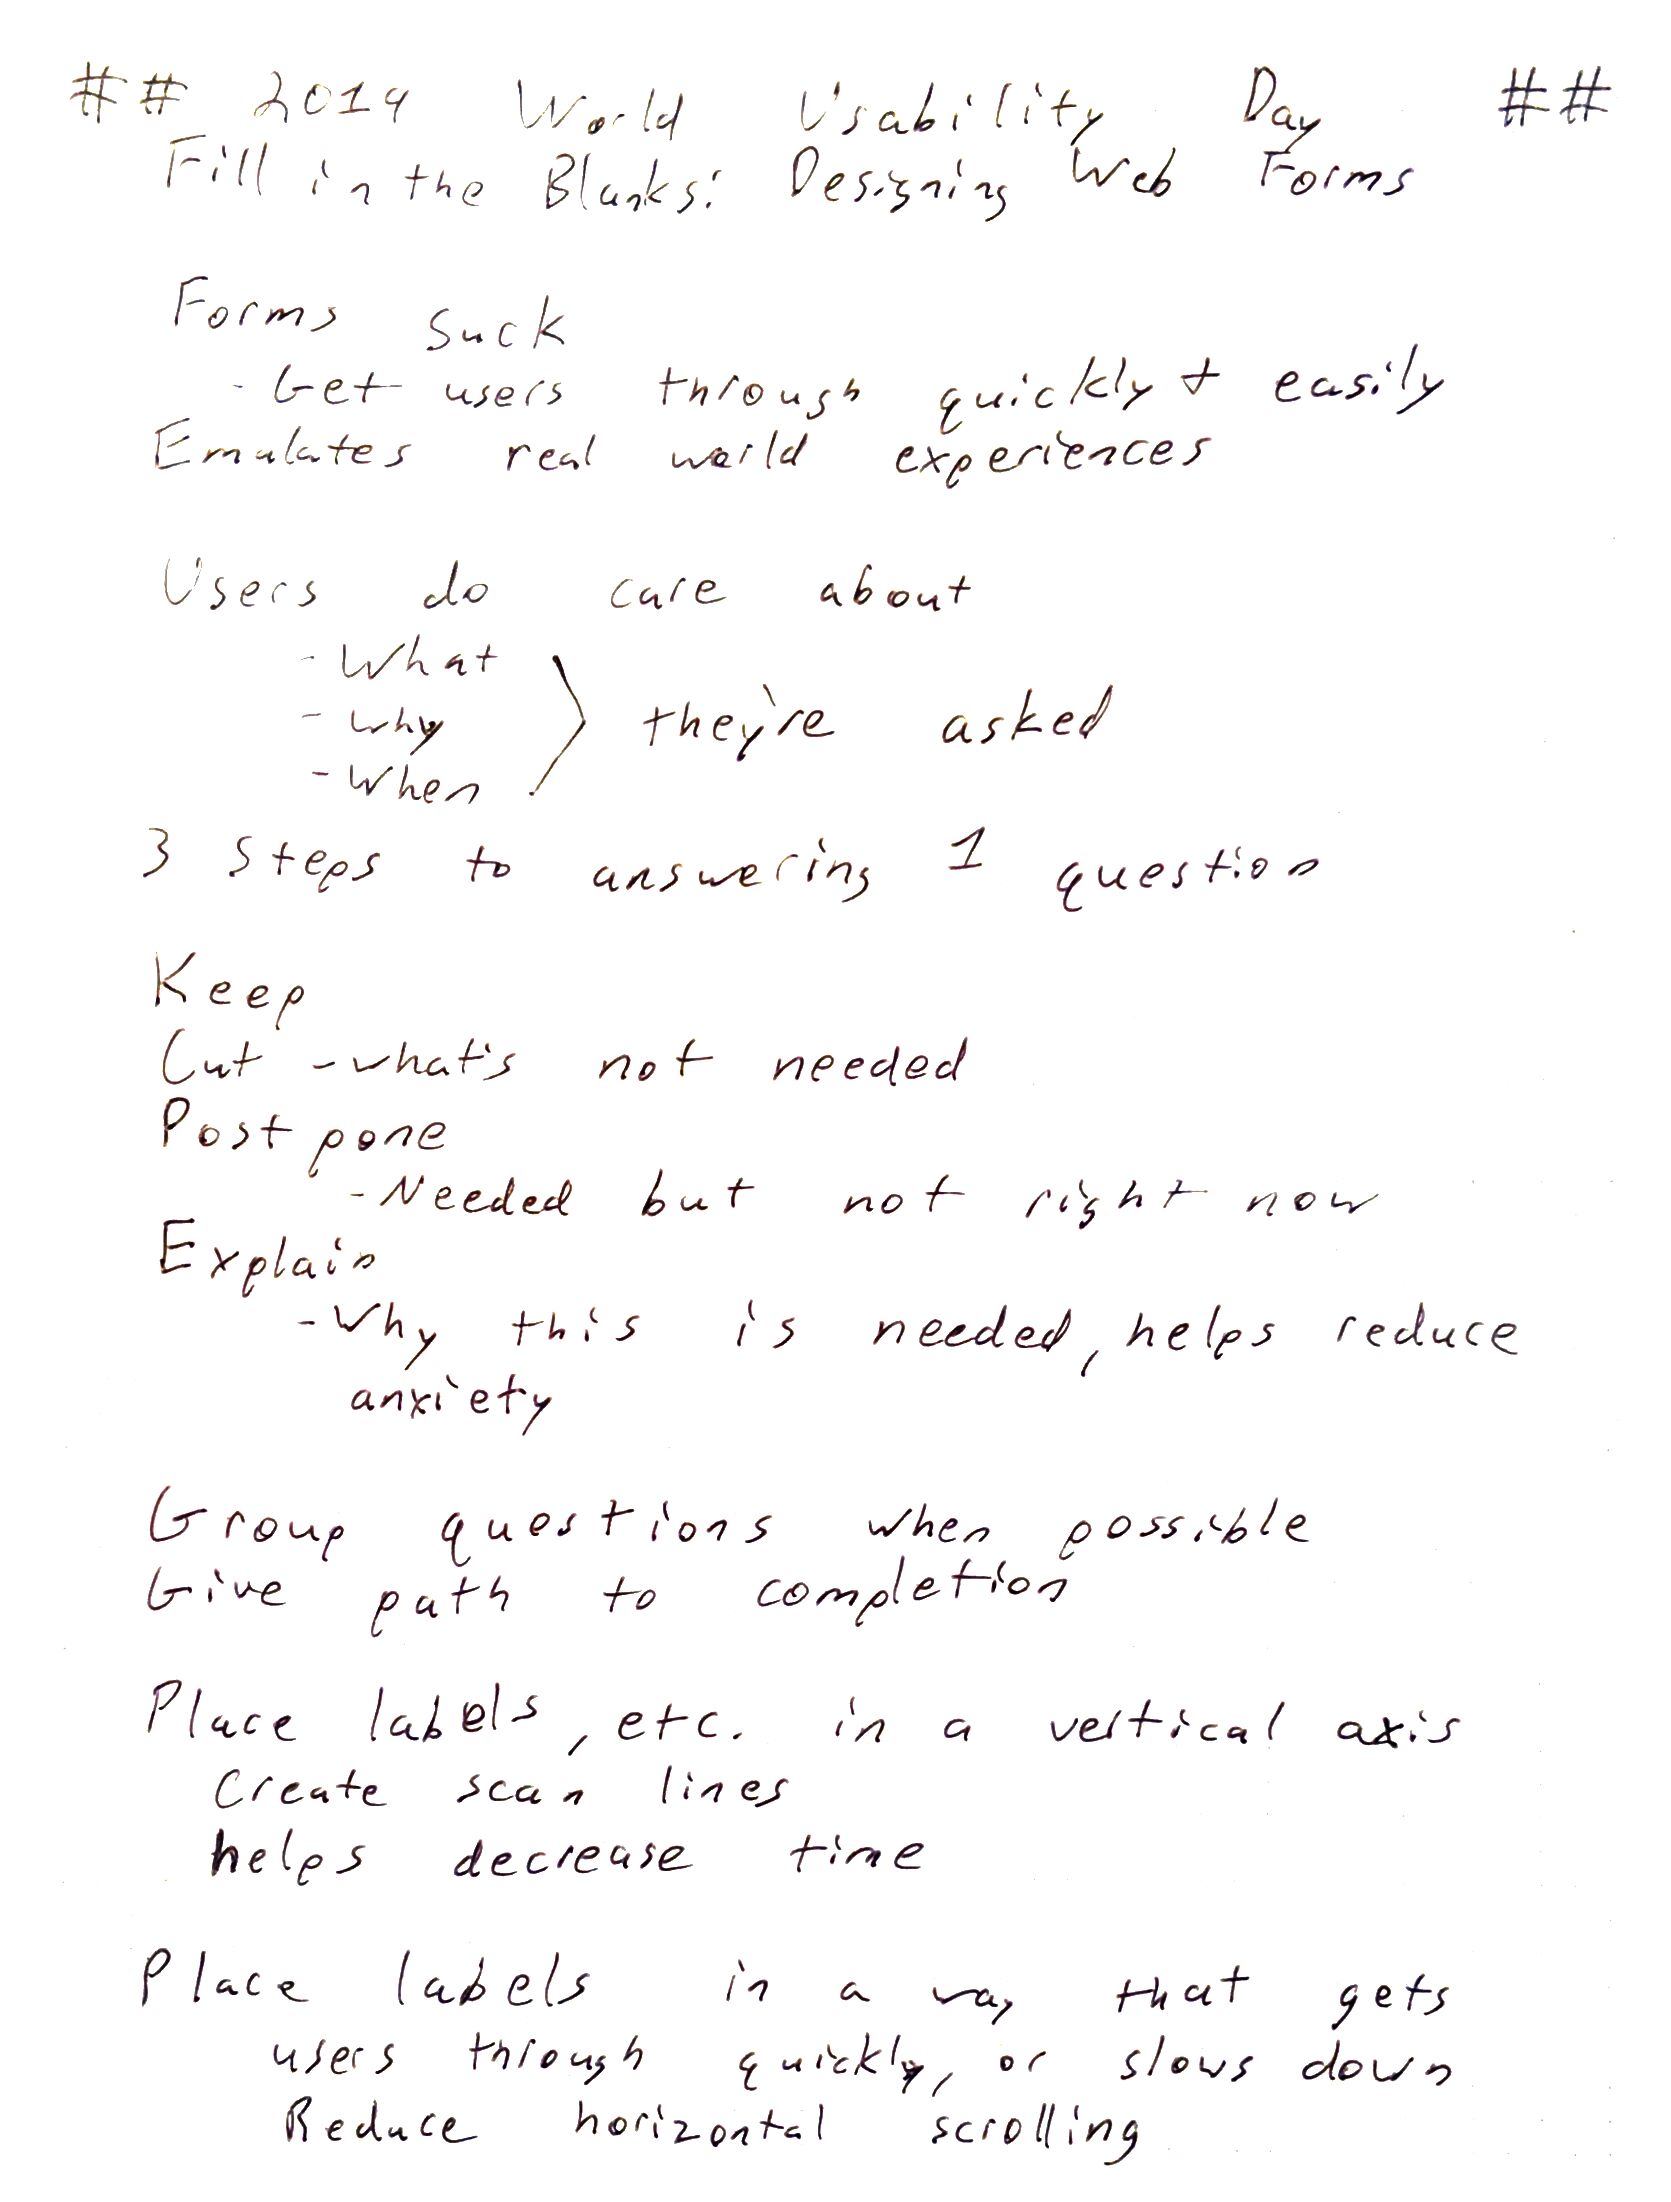 ## 2019 World Usability Day ##
Fill in the Blanks: Designing Web Forms
Forms suck
- Get users through quickly + easily
Emulates real world experiences
Users do care about
- What
- Why
- When
they're asked
3 steps to answering 1 question
Keep
Cut - what's not needed
Postpone
- Needed but not right now
Explain
- Why this is needed, helps reduce
anxiety
Group questions when possible
Give path to completion
Place labels, etc. in a vertical axis
Create scan lines
helps decrease time
Place labels in a way that gets
users through quickly, or slows down
Reduce horizontal scrolling